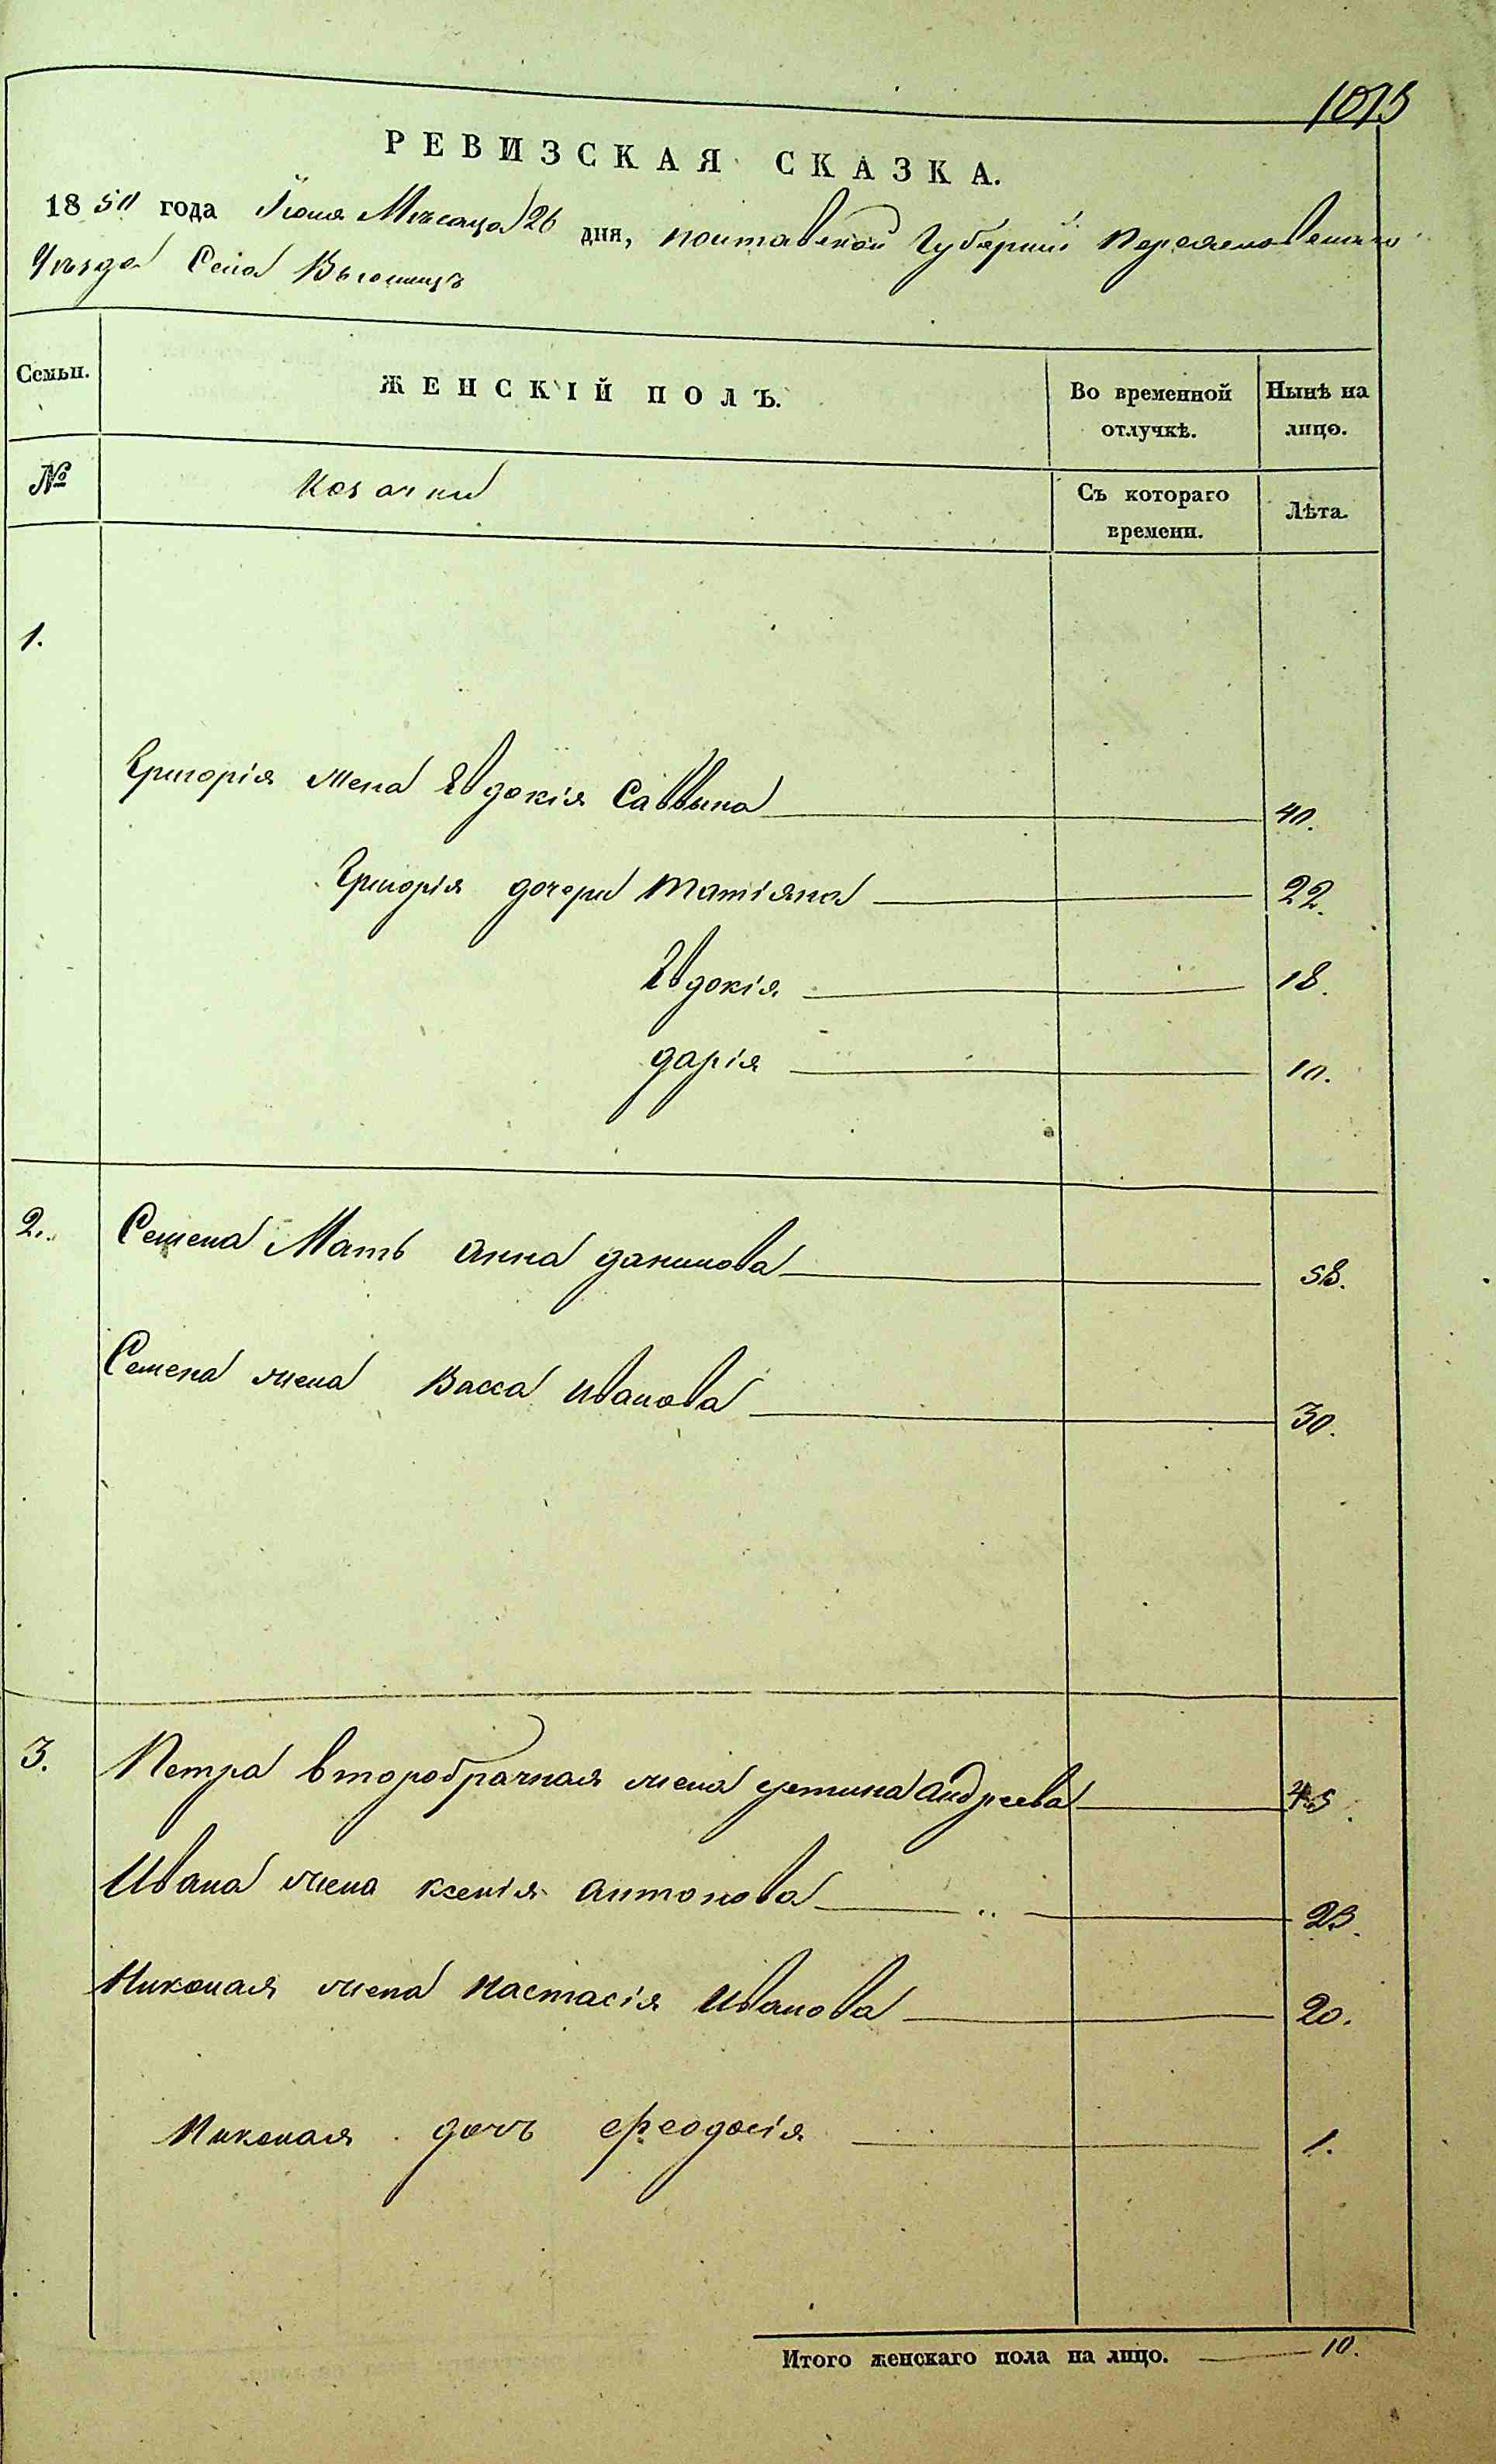 1073
РЕВИЗСКАЯ СКАЗКА.
1850 года Июня Мѣсяца 26 дня, полтавской Губерніи Переяславскаго
Уѣзда Села
Семьи.
ЖЕНСКІЙ ПОЛЪ.
Во временной отлучкѣ.
Нынѣ на лицо.
№
Козачки
Съ котораго времени.
Лѣта.
1.
Григорія жена Евдокія Саввина 40.
Григорія дочери татіяна 22.
Евдокія 18.
дарія 10.
2. Семена Мать анна данилова 58.
Семена жена Васса иванова 30.
3. Петра второбрачная жена устина андреева 45.
Ивана жена ксенія антонова 23.
Николая жена настасія иванова 20.
Николая дочь феодосія 1.
Итого женскаго пола на лицо. 10.